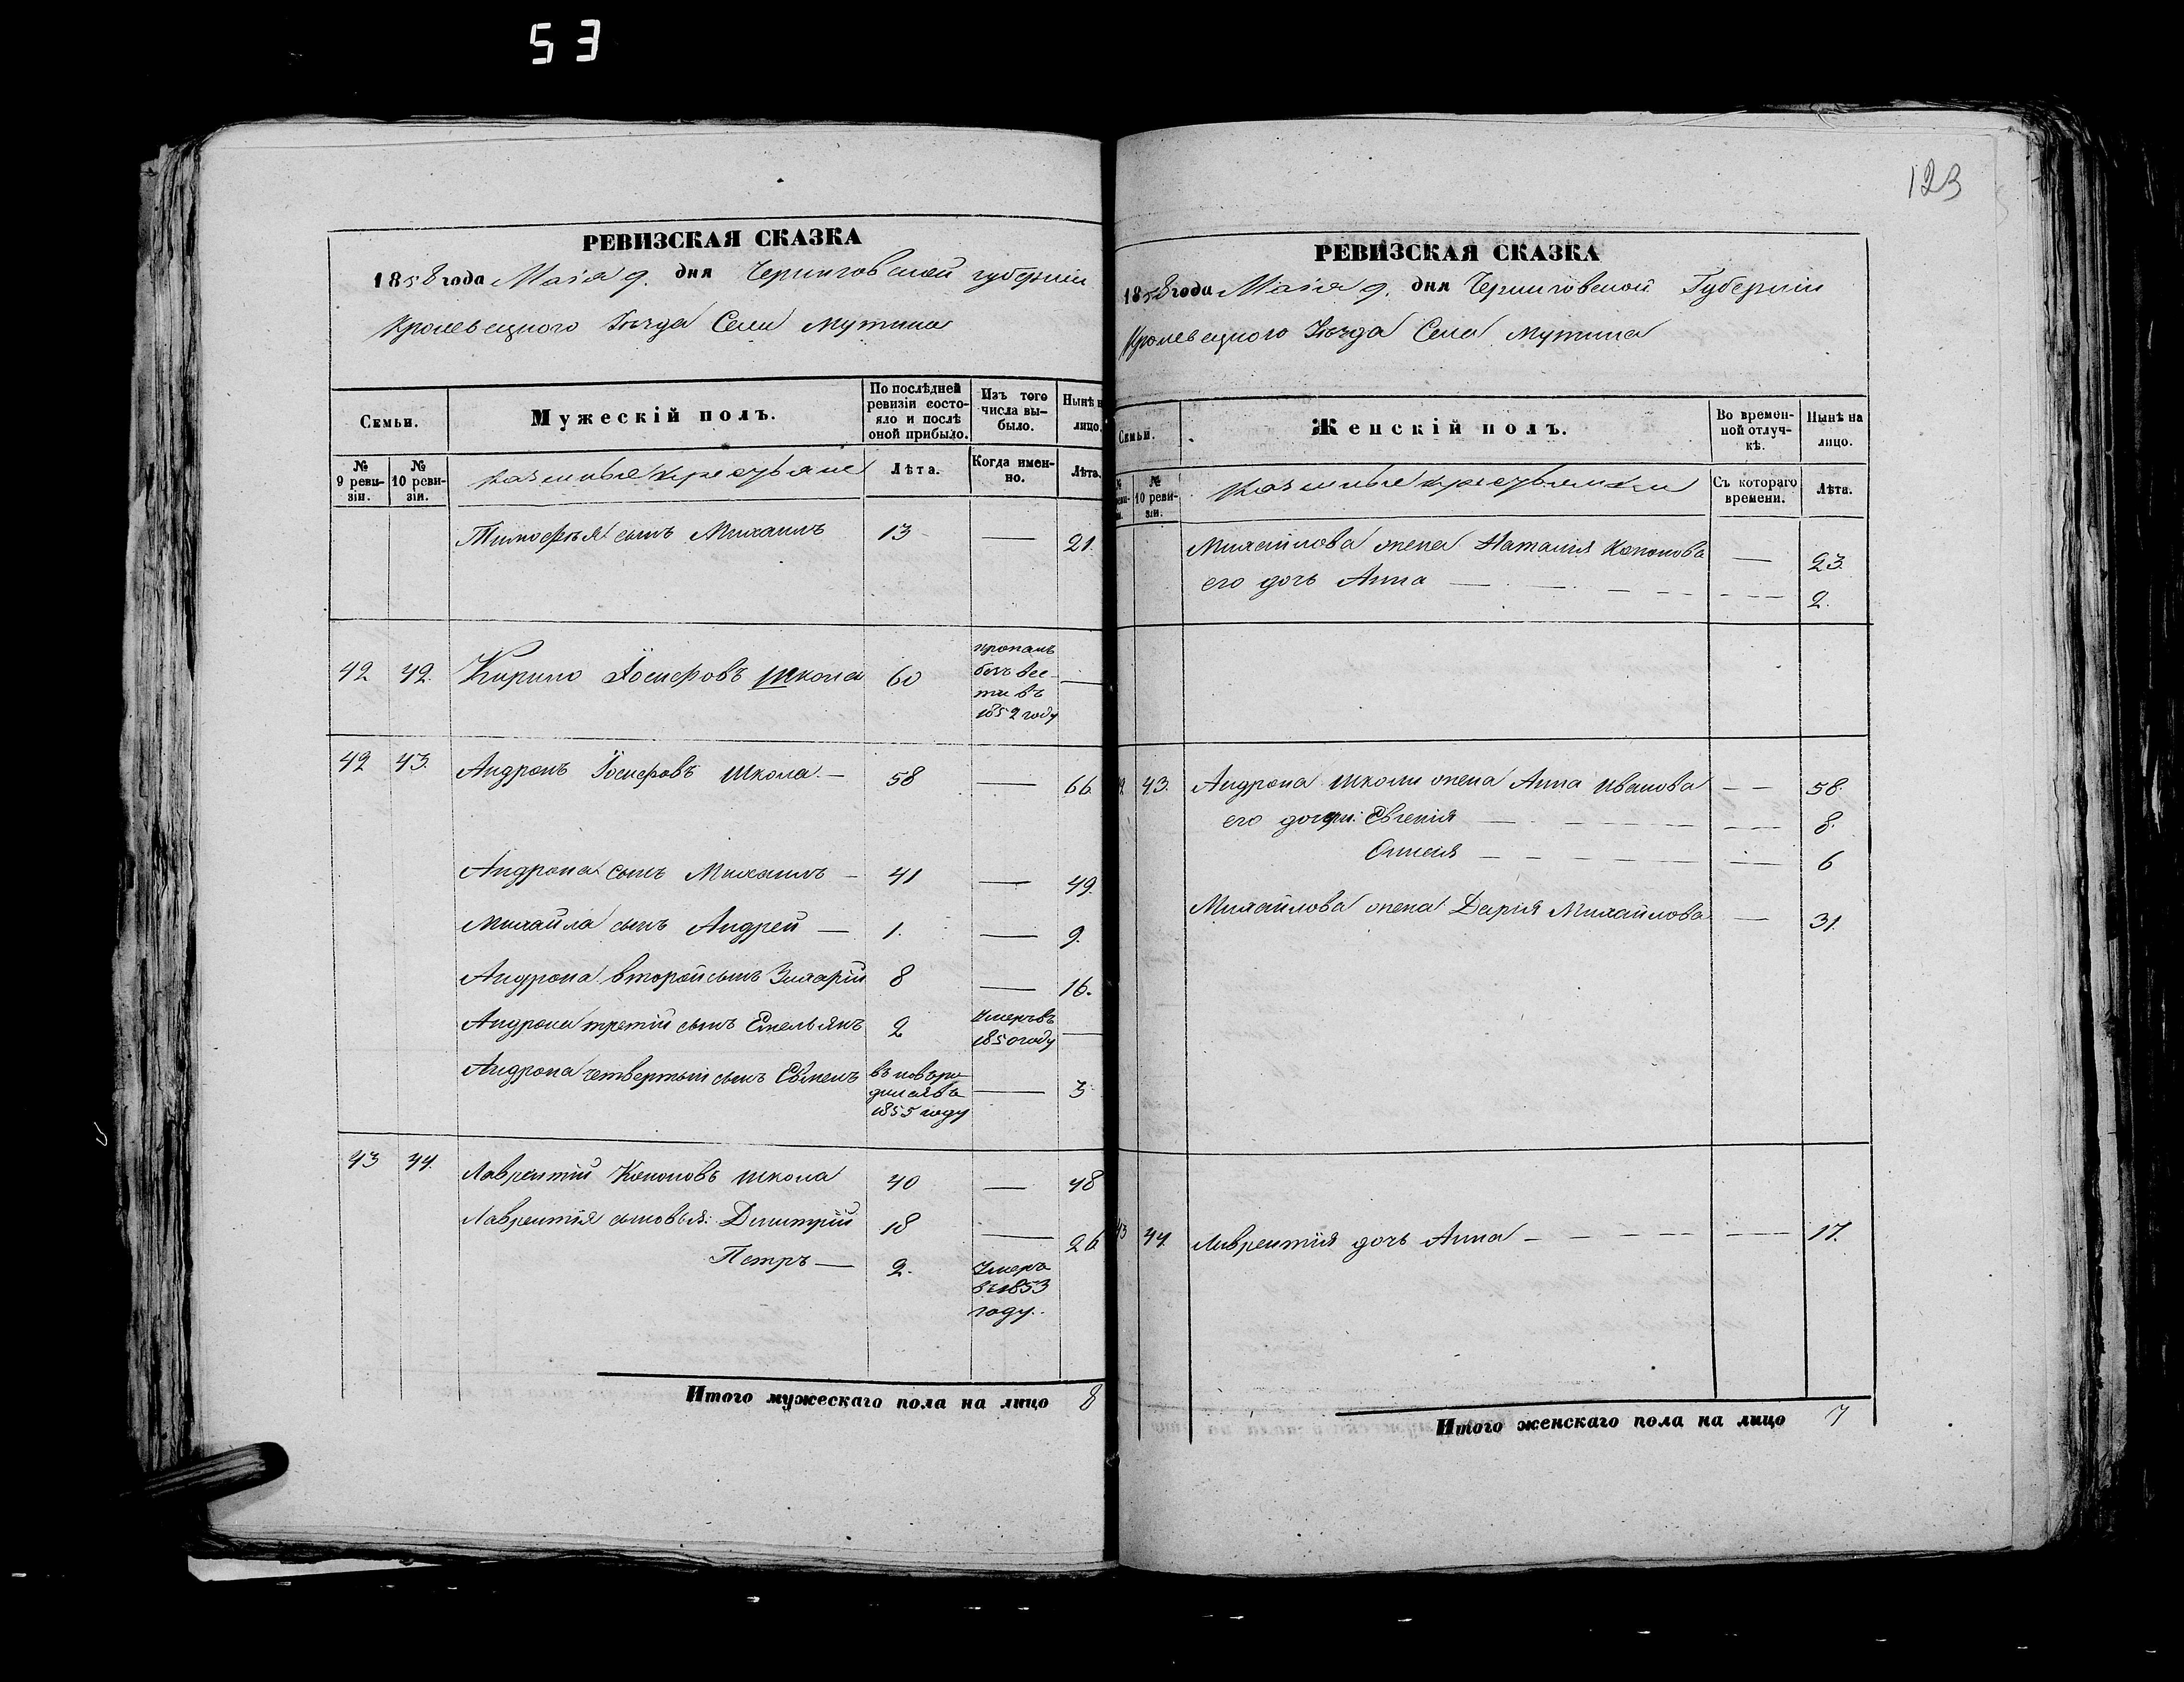 53
РЕВИЗСКАЯ СКАЗКА
1858 года Маія 9. дня Черниговской губерніи
Кролевецкого Уѣзда Села Мутина
Семьи.
Мужескій полъ.
По послѣдней ревизіи состояло и послѣ оной прибыло.
Изъ того числа выбыло.
Нынѣ н лицо.
№ 9 ревизіи.
№ 10 ревизіи.
казенные крестьяне
Лѣта.
Когда именно.
Лѣта.
Тимофѣя сынъ Михаилъ 13 — 21.
42 42. Кирило Іосифовъ Школа 60 пропалъ безъ вести въ 1852 году —
42 43. Андронъ Іосифовъ Школа — 58 — 66.
Андрона сынъ Михаилъ — 41 — 49.
Михайла сынъ Андрей — 1. — 9.
Андрона второй сынъ 8 — 16.
Андрона третій сынъ Емельянъ 2 Умеръ въ 1850 году —
Андрона четвертый сынъ Евменъ въ 1855 году — 3
43 44. Лаврентій Кононовъ Школа 40 — 48
Лаврентія сыновья: Димитрій 18 — 26
Петръ — 2. Умеръ въ 1853 году.
Итого мужескаго пола на лицо 8
123
РЕВИЗСКАЯ СКАЗКА
1858 года Маія 9. дня Черниговской Губерніи
Кролевецкого Уѣзда Села Мутина
Семьи.
Женскій полъ.
Во временной отлучкѣ.
Нынѣ на лицо.
№ 10 ревизіи.
казенные крестьянки
Съ котораго времени.
Лѣта.
Михайлова жена Наталия Кононова — 23.
его дочь Анна — 2.
43. Андрона Школи жена Анна Иванова — 58.
его дочери: Евгенія — 8.
— 6
Михайлова жена Дарія Михайлова — 31.
43 44 Лаврентія дочь Анна — 17.
Итого женскаго пола на лицо 7